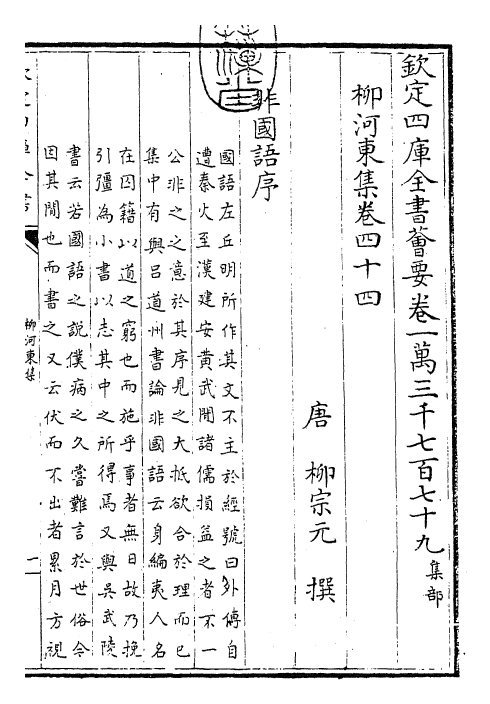 欽定四庫全書薈要卷一萬三千七百七十九 集部
柳河東集卷四十四
唐 柳宗元 撰
非國語序
國語左丘明所作其文不主於經號曰外傳自
遭秦火至漢建安黃武間諸儒損益之者不一
公非之之意於其序見之大抵欲合於理而已
集中有與呂道州書論非國語云身編夷人名
在囚籍以道之窮也而施乎事者無日故乃挽
引彊為小書以志其中之所得焉又與吳武陵
書云若國語之說僕病之久嘗難言於世俗今
因其閒也而書之又云伏而不出者累月方視
柳河東集
一